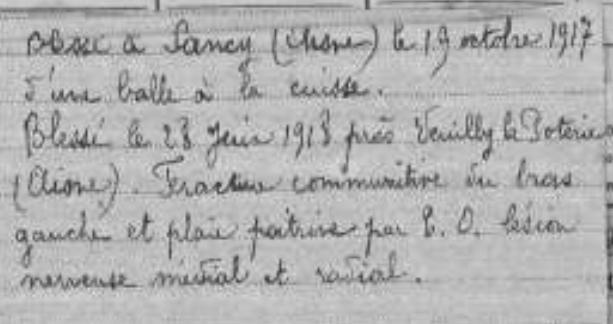 Blessé à Sancy (Aisne) le 19 octobre 1917
d'une balle à la cuisse.
Blessé le 28 Juin 1918 près Veuilly la Poterie
(Aisne). Fracture communitive du bras
gauche et plaie poitrine par E. O. lésion
nerveuse médial et radial.